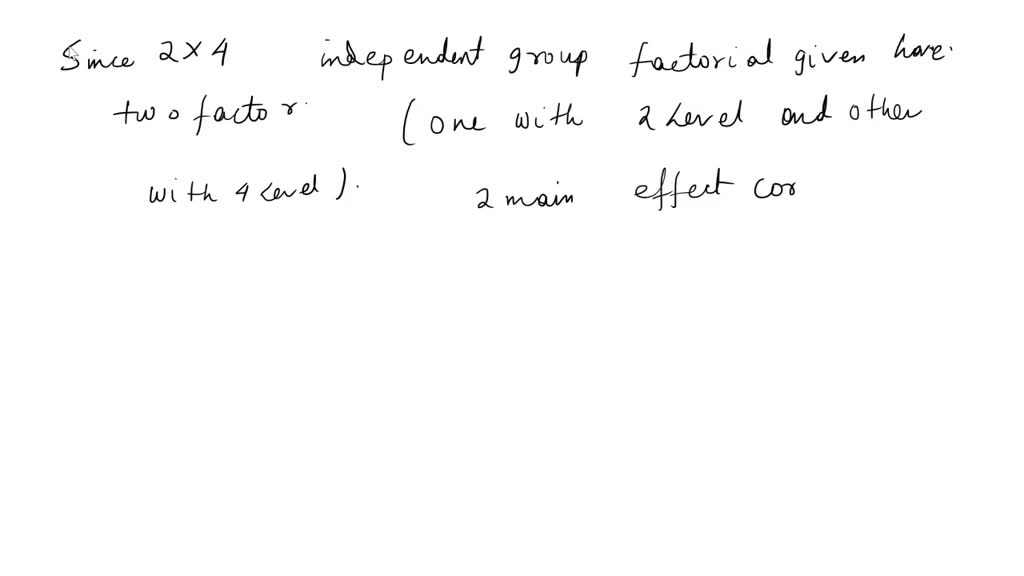 Since 2×4 independent group factorial given have.
two factor. (one with 2 Level and other
with 4 Level). 2 main effect cor